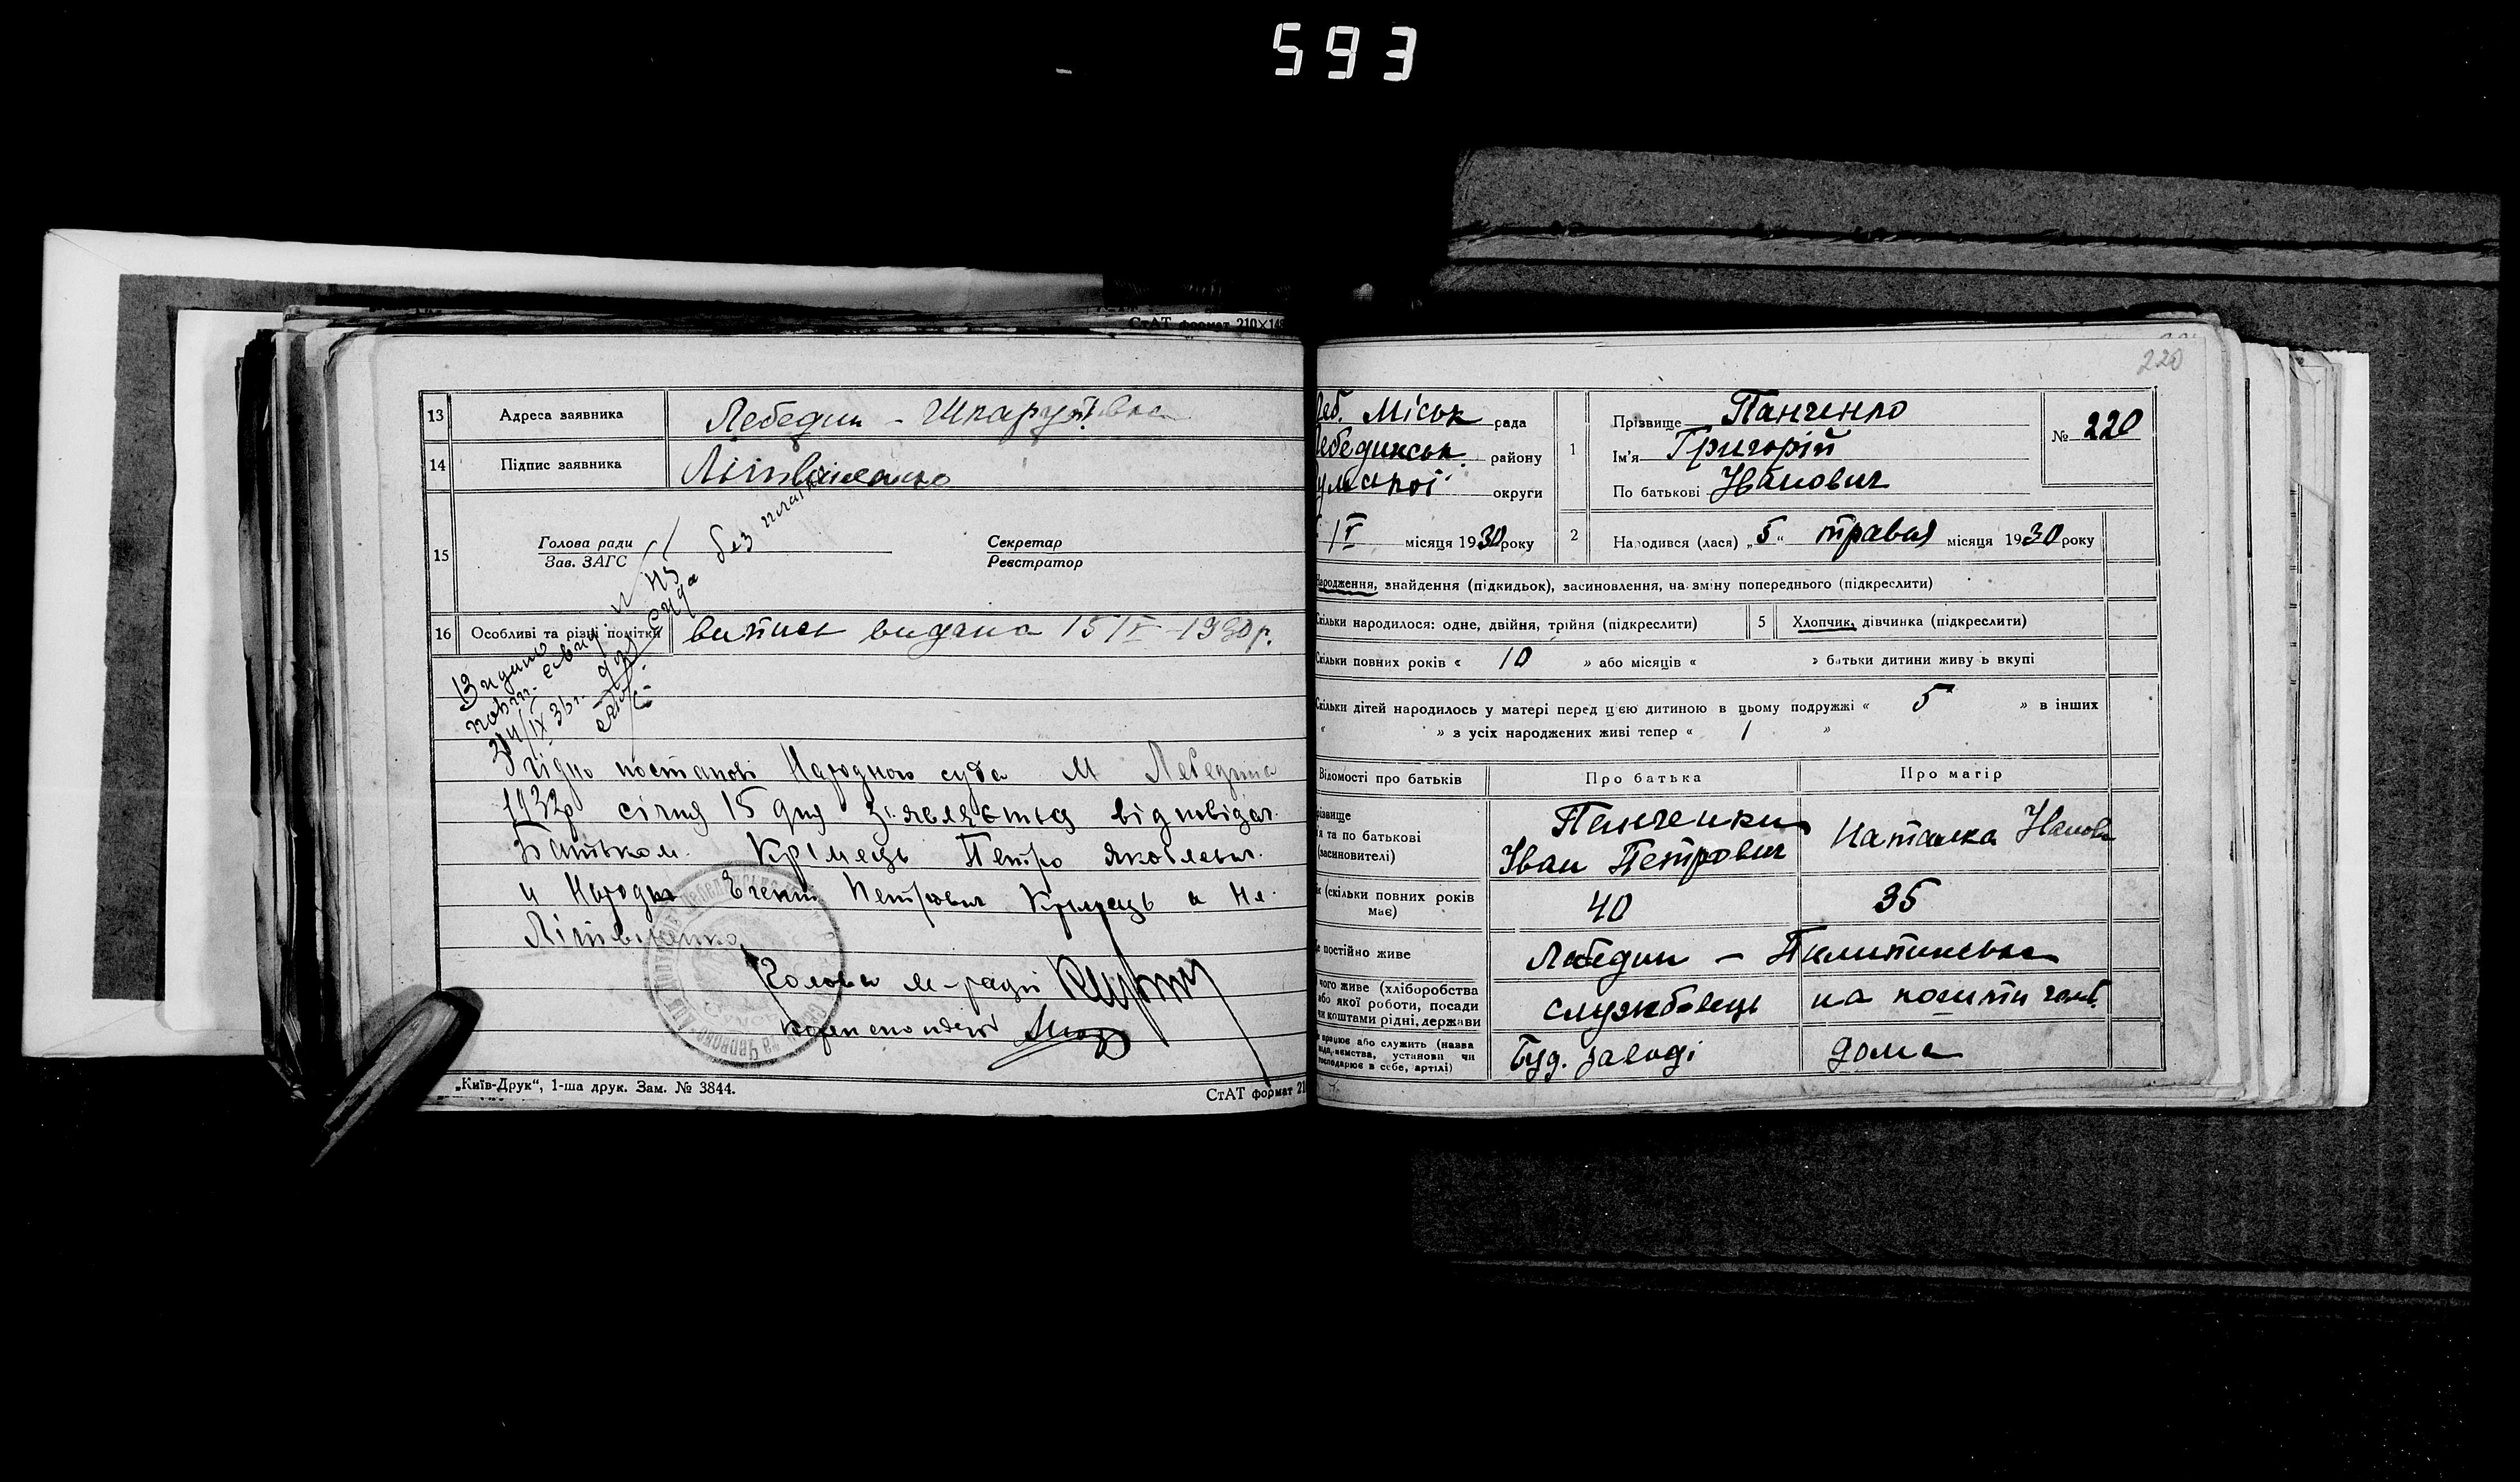 593
СтАТ формат 210×148
13 Адреса заявника Лебедин -
14 Підпис заявника Літвіненко
15 Голова ради
Зав. ЗАГС
Секретар
Реєстратор
без
16 Особливі та різні помітки витись видана 15 IV - 1930 р.
Видано
повт.
Згідно постанові Народного суда М Лебедина
1932р січня 15 дня з'являється відповідач.
Батьком. Крімець Петро Яковлевич.
и Народж Евгент Петрович Крімець а не
Літвиненко
Голова м-ради
„Київ-Друк“, 1-ша друк. Зам. № 3844.
СтАТ формат 21
220
Леб. Міськ рада
Лебединськ. району
Сумської округи
IV місяця 1930 року
1 Прізвище Панченко
Ім'я Григорій
По батькові Іванович
№ 220
2 Народився (лася) „5“ травня місяця 1930 року
Народження, знайдення (підкидьок), засиновлення, на зміну попереднього (підкреслити)
Скільки народилося: одне, двійня, трійня (підкреслити)
5 Хлопчик, дівчинка (підкреслити)
Скільки повних років « 10 » або місяців « » батьки дитини живуть вкупі
Скільки дітей народилось у матері перед цією дитиною в цьому подружжі « 5 » в інших
« » з усіх народжених живі тепер « 1 »
Відомості про батьків Про батька Про матір
Прізвище
ім'я та по батькові
(засиновителі)
Панченки
Іван Петрович
Наталка Іванов
Вік (скільки повних років має) 40 35
Де постійно живе Лебедин -
З чого живе (хліборобства або якої роботи, посади чи коштами рідні, держави
службовець
на кошти чолов.
де працює або служить (назва підприємства, установи чи господарює в себе, артілі)
Буд. заводі
дома